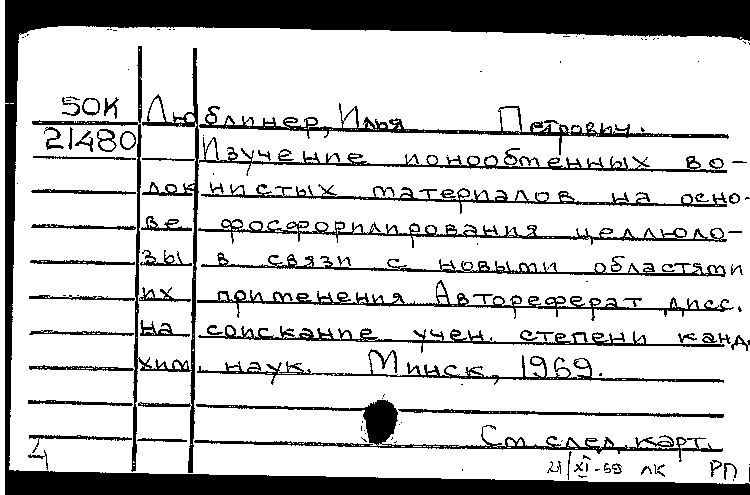 50К Люблинер, Илья Петрович.
21480 Изучение ионообменных во-
локнистых материалов на осно-
ве фосфорилирования целлюло-
зы в связи с новыми областями
их применения. Автореферат дисс.
на соискание учен. степени канд.
хим. наук. Минск, 1969.
См. след. карт.
4 21/XI-69 лк РП